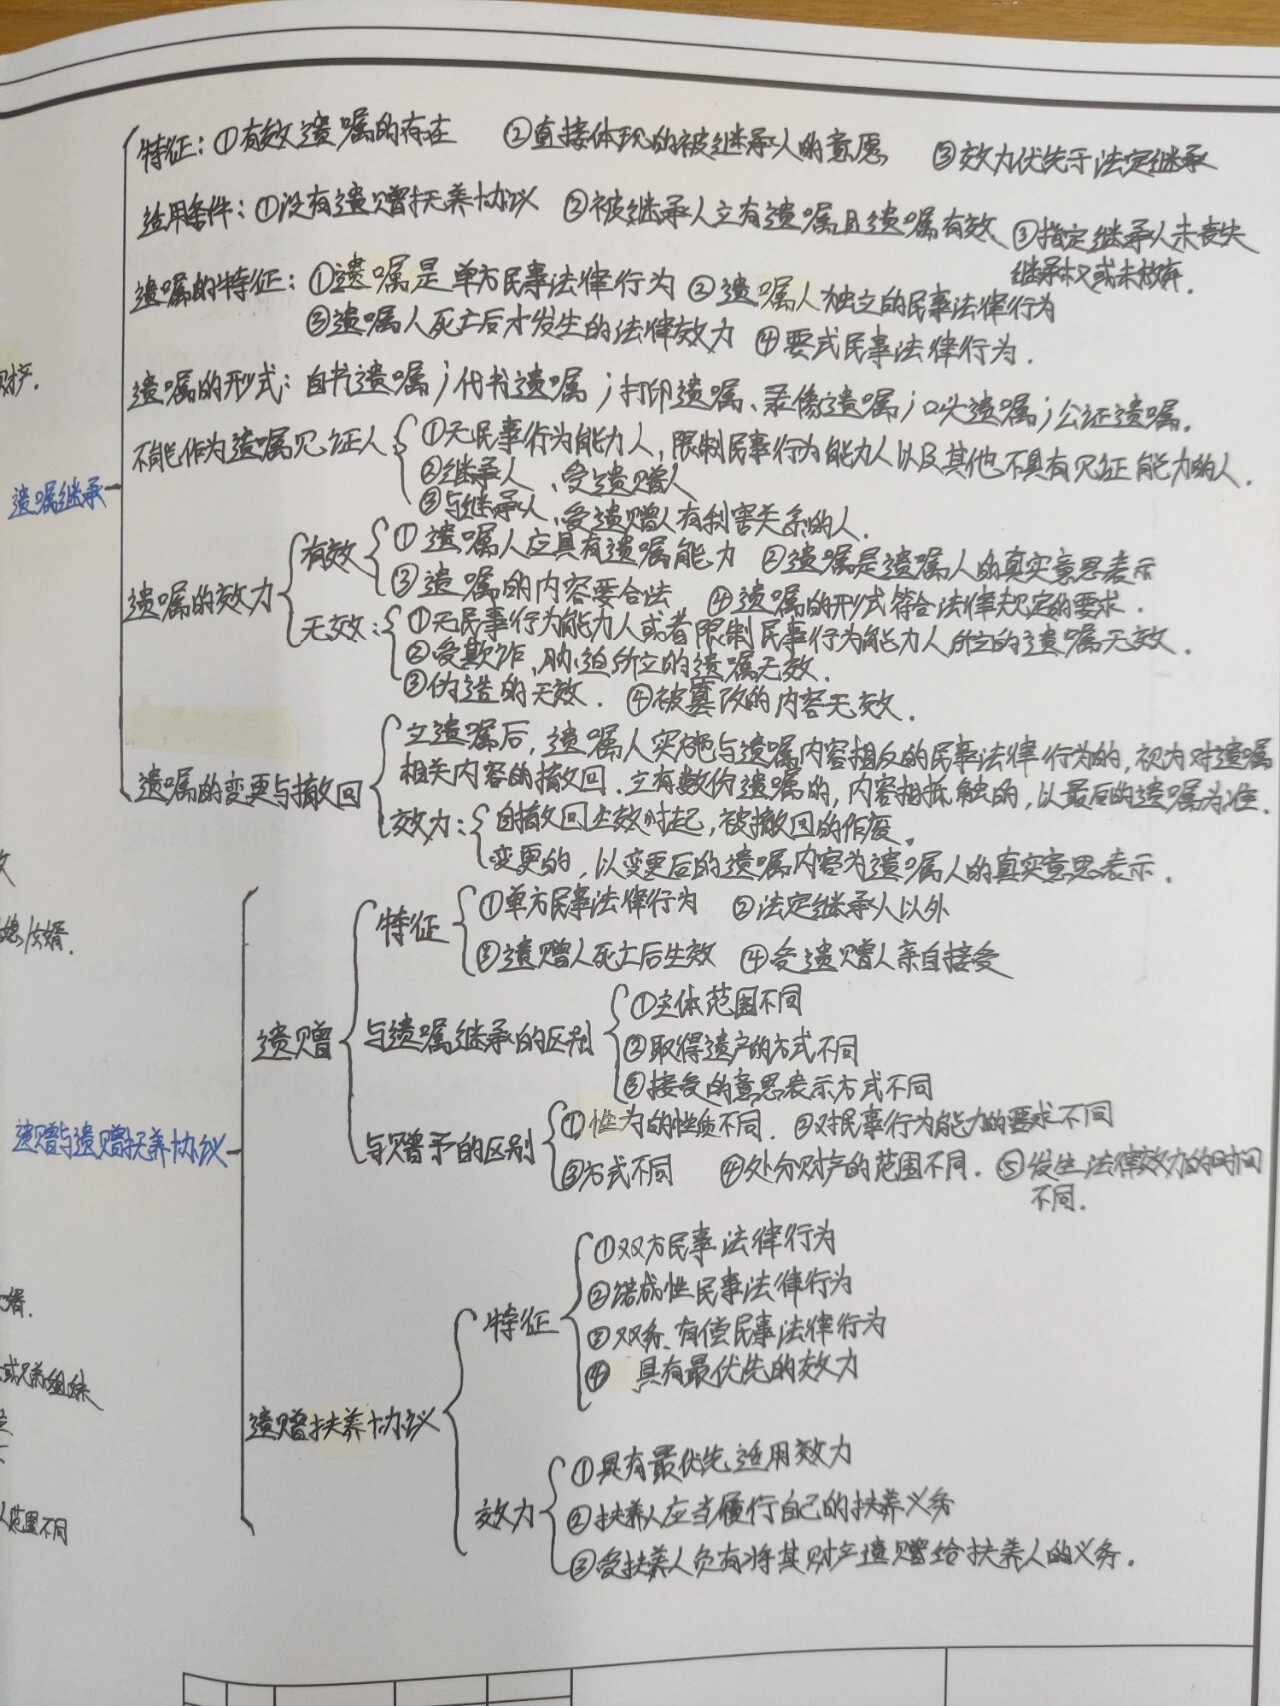 特征：①有效遗嘱的存在 ②直接体现的被继承人的意愿 ③效力优先于法定继承
适用条件：①没有遗赠扶养协议 ②被继承人立有遗嘱且遗嘱有效、③指定继承人未丧失
继承权或未放弃．
遗嘱的特征：①遗嘱是单方民事法律行为 ②遗嘱人独立的民事法律行为
③遗嘱人死亡后才发生的法律效力 ④要式民事法律行为．
财产．
遗嘱的形式：自书遗嘱；代书遗嘱；打印遗嘱、录像遗嘱；口头遗嘱；公证遗嘱．
不能作为遗嘱见证人
①无民事行为能力人，限制民事行为能力人以及其他不具有见证能力的人．
②继承人、受遗赠人
③与继承人、受遗赠人有利害关系的人．
遗嘱继承
遗嘱的效力
有效
①遗嘱人应具有遗嘱能力 ②遗嘱是遗嘱人的真实意思表示
③遗嘱的内容要合法 ④遗嘱的形式符合法律规定的要求．
无效：
①无民事行为能力人或者限制民事行为能力人所立的遗嘱无效．
②受欺诈，胁迫所立的遗嘱无效．
③伪造的无效． ④被篡改的内容无效．
遗嘱的变更与撤回
立遗嘱后，遗嘱人实施与遗嘱内容相反的民事法律行为的，视为对遗嘱
相关内容的撤回．立有数份遗嘱的，内容相抵触的，以最后的遗嘱为准．
效力：
自撤回生效时起，被撤回的作废。
变更的，以变更后的遗嘱内容为遗嘱人的真实意思表示．
女婿．
遗赠与遗赠扶养协议
遗赠
特征
①单方民事法律行为 ②法定继承人以外
③遗赠人死亡后生效 ④受遗赠人亲自接受
与遗嘱继承的区别
①主体范围不同
②取得遗产的方式不同
③接受的意思表示方式不同
与赠予的区别
①性为的性质不同． ②对民事行为能力的要求不同
③方式不同 ④处分财产的范围不同． ⑤发生法律效力的时间
不同．
婿．
或兄弟姐妹
范围不同
遗赠扶养协议
特征
①双方民事法律行为
②诺成性民事法律行为
③双务、有偿民事法律行为
④具有最优先的效力
效力
①具有最优先适用效力
②扶养人应当履行自己的扶养义务
③受扶养人负有将其财产遗赠给扶养人的义务．